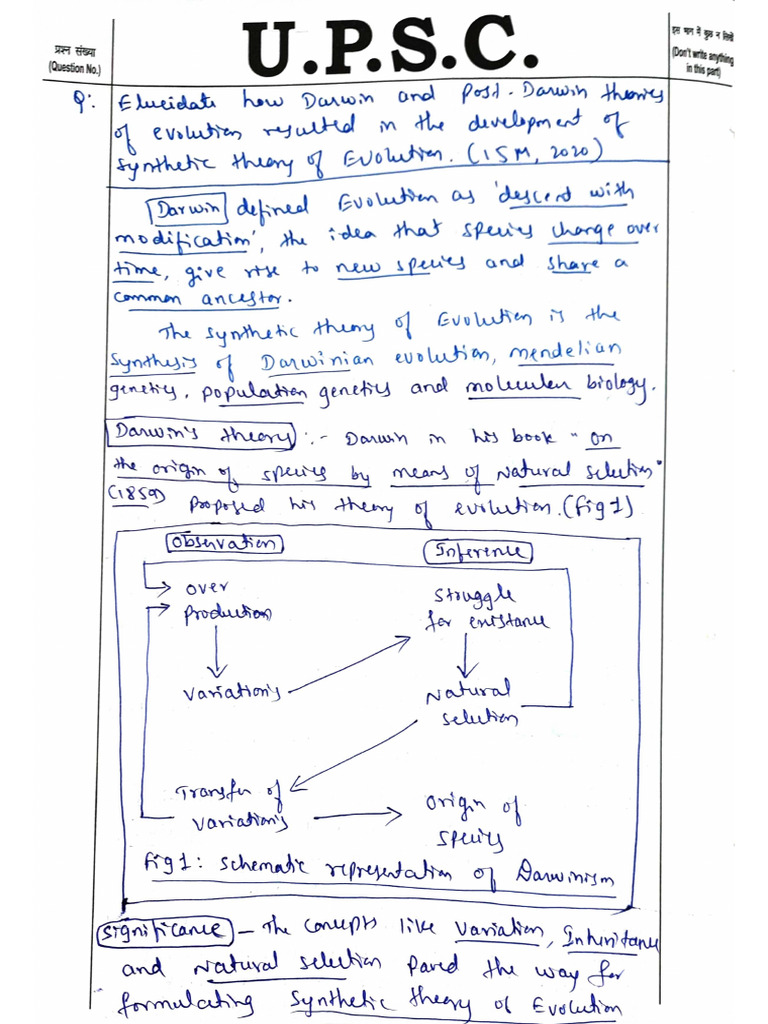 प्रश्न संख्या
(Question No.)
U.P.S.C.
इस भाग में कुछ न लिखें
(Don't write anything
in this part)
Q: Elucidate how Darwin and Post-Darwin theories
of evolution resulted in the development of
Synthetic theory of Evolution. (15M, 2020)
Darwin defined Evolution as 'descent with
modification', the idea that species change over
time, give rise to new species and share a
common ancestor.
The synthetic theory of Evolution is the
Synthesis of Darwinian evolution, mendelian
genetics, population genetics and molecular biology.
Darwin's theory :- Darwin in his book "on
the origin of species by means of Natural selection"
(1859) proposed his theory of evolution. (fig 1)
Observation
Inference
over
production
Struggle
for existance
variation's
Natural
selection
Transfer of
variation's
Origin of
species
fig 1: schematic representation of Darwinism
Significance - The concepts like variation, Inheritance
and Natural selection paved the way for
formulating Synthetic theory of Evolution